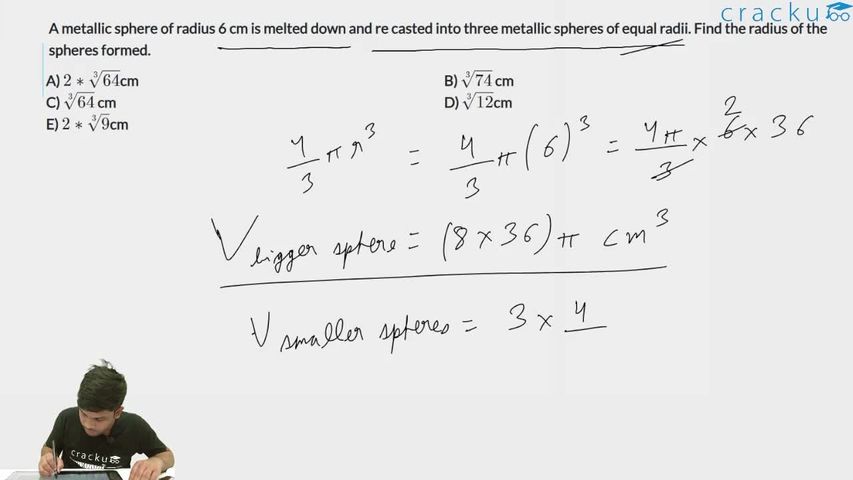 cracku
A metallic sphere of radius 6 cm is melted down and re casted into three metallic spheres of equal radii. Find the radius of the
spheres formed.
A) 2 * ∛64cm
B) ∛74 cm
C) ∛64 cm
D) ∛12cm
E) 2 * ∛9cm
4/3 π r³ = 4/3 π (6)³ = 4π/3 × 6 × 36
2
V bigger sphere = (8 × 36) π cm³
V smaller spheres = 3 × 4
cracku